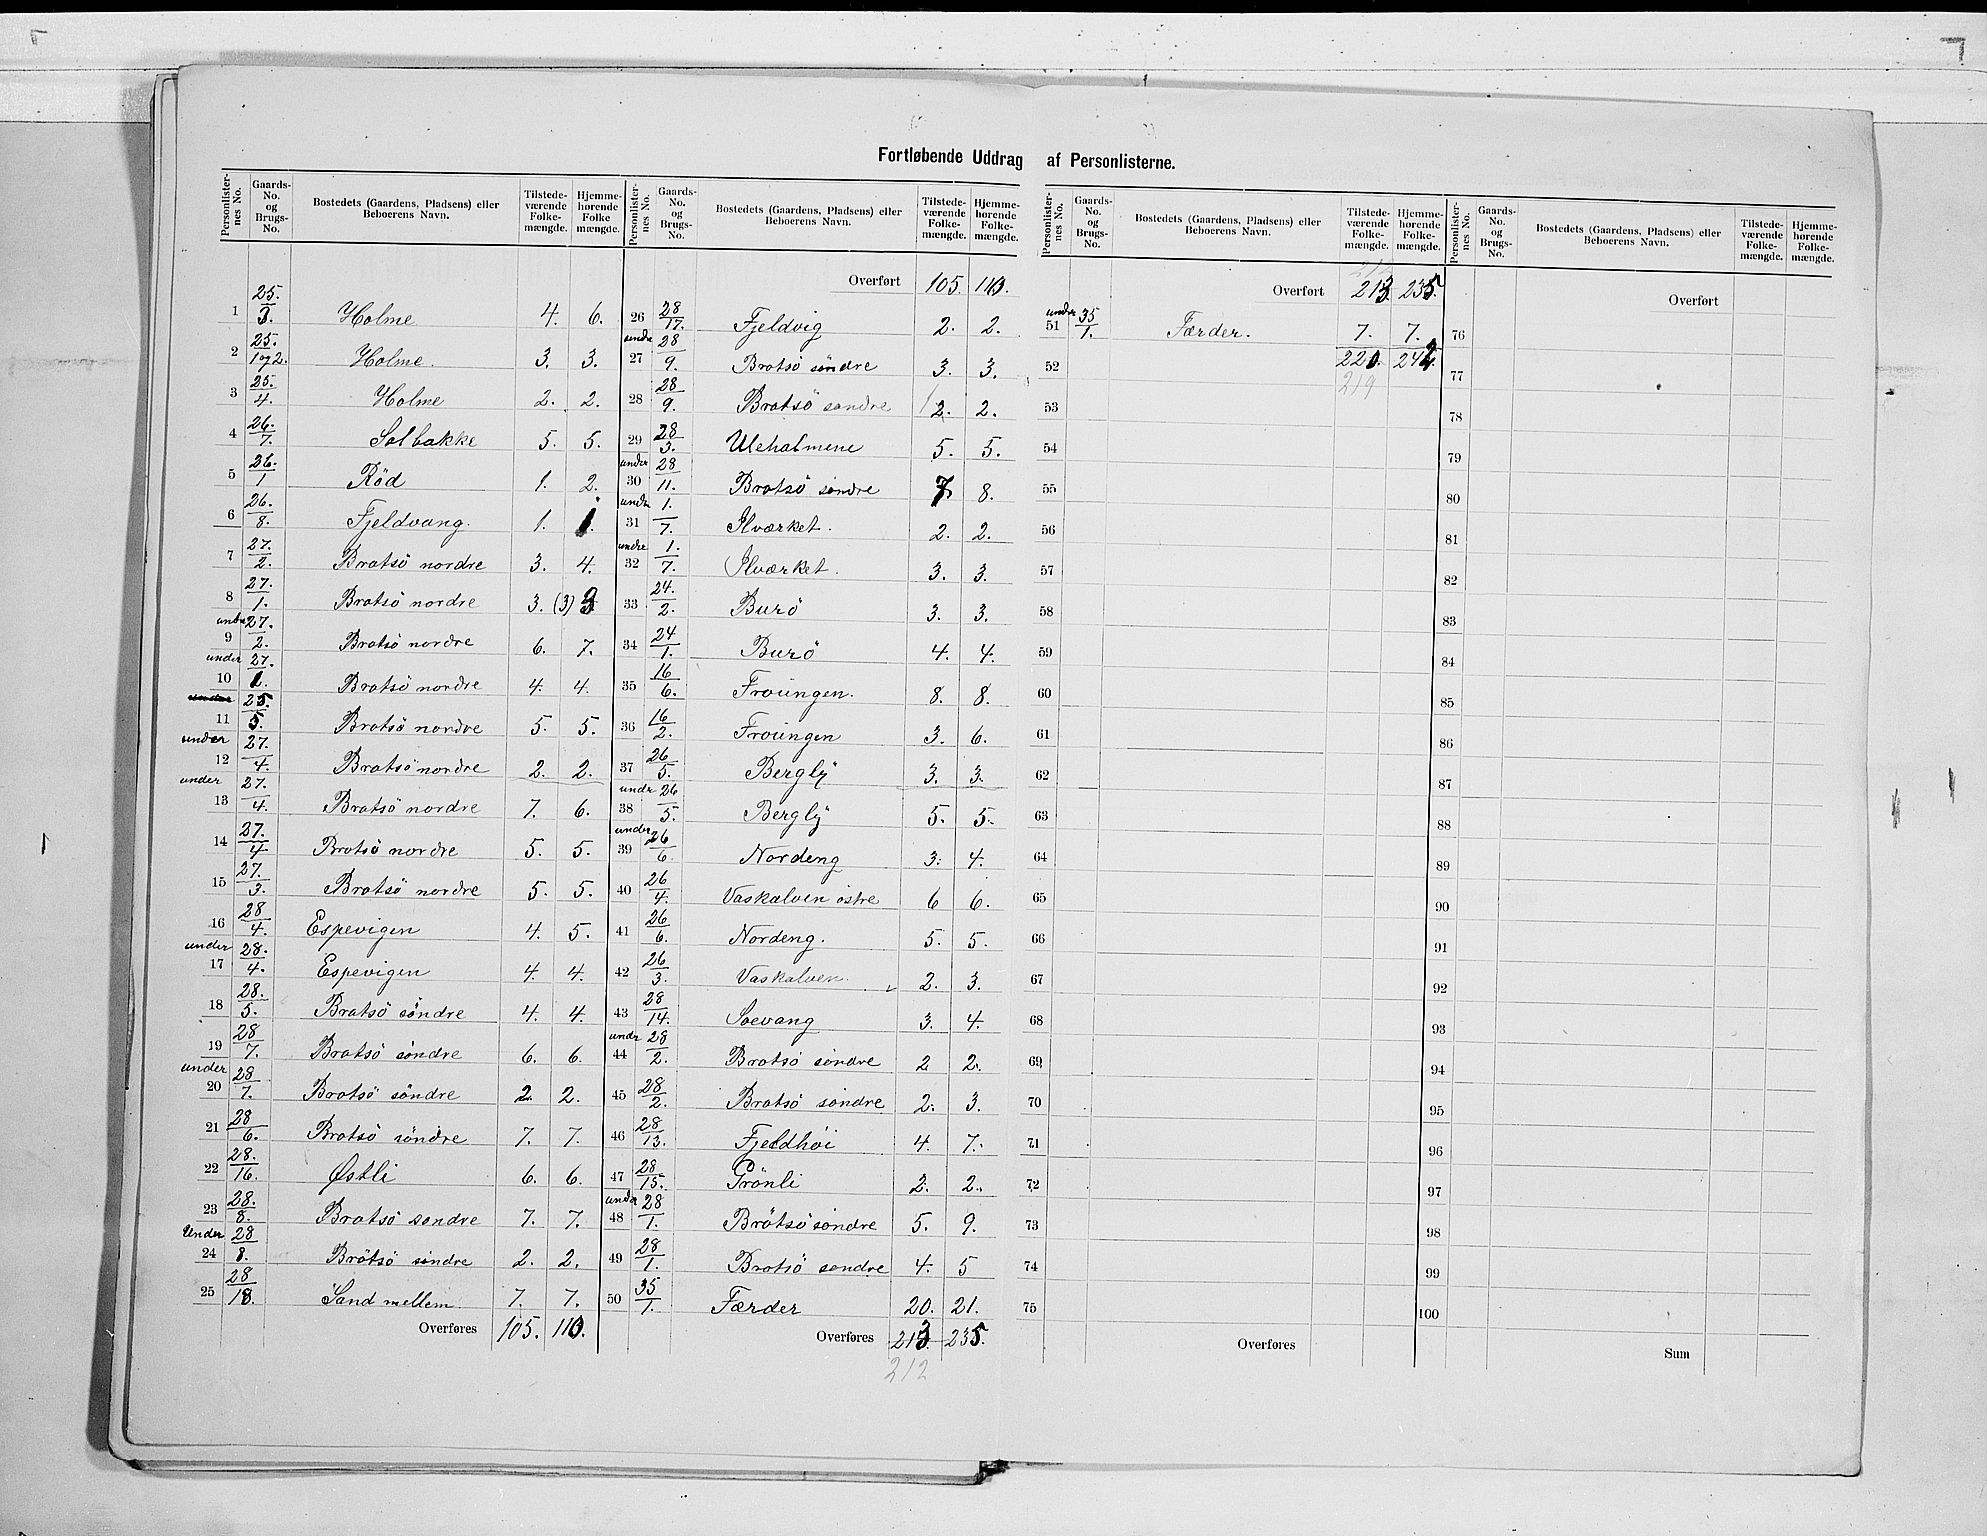 Fortløbende Uddrag af Personlisterne.
Personlister-nes No. | Gaards-No. og Brugs-No. | Bostedets (Gaardens, Pladsens) eller Beboerens Navn. | Tilstede-værende Folke-mængde. | Hjemme-hørende Folke mængde.
1 25./3. Holme 4. 6.
2 25./1 og 2. Holme. 3. 3.
3 25./4. Holme 2. 2.
4 26./7. Solbakke 5. 5.
5 26./1 Röd 1. 2.
6 26./8. Fjeldvang. 1. 1.
7 27./2. Bratsö nordre 3. 4.
8 27./1. Bratsö nordre 3. (3) 3
under 9 27./2. Bratsö nordre 6. 7.
under 10 27./1. Bratsö nordre 4. 4.
11 25./5. Bratsö nordre 5. 5.
under 12 27./4. Bratsö nordre 2. 2.
under 13 27./4. Bratsö nordre 7. 6.
14 27./4 Bratsö nordre 5. 5.
15 27./3. Bratsö nordre 5. 5.
16 28/4. Espevigen 4. 5.
under 17 28./4. Espevigen 4. 4.
18 28./5. Bratsö söndre 4. 4.
19 28/7. Bratsö söndre 6. 6.
under 20 28/7. Bratsö söndre 2. 2.
21 28/6. Bratsö söndre 7. 7.
22 28./16. Østli 6. 6.
23 28./8. Bratsö sondre 7. 7.
Under 24 28/8. Brötsö söndre 2. 2.
25 28/18. Sand mellem. 7. 7.
Overføres 105. 110.
Personlister-nes No. | Gaards-No. og Brugs-No. | Bostedets (Gaardens, Pladsens) eller Beboerens Navn. | Tilstede-værende Folke-mængde. | Hjemme-hørende Folke-mængde.
Overført 105. 110.
26 28/17. Fjeldvig 2. 2.
27 28/9. Bratsö söndre 3. 3.
28 28/9. Bratsö sondre 2. 2.
29 28/3. Uleholmene 5. 5.
under 30 28/11. Bratsö söndre 7. 8.
undr 31 1./7. Ilværket. 2. 2.
undre 32 1./7. Ilværket. 3. 3.
33 24./2. Burö 3. 3.
34 24/1. Burö 4. 4.
35 16/6. Frouingen. 8. 8.
36 16/2. Frouingen 3. 6.
37 26/5. Bergly 3. 3.
undr 38 26/5. Bergly 5. 5.
under 39 26/6. Nordeng 3. 4.
40 26/4. Vaskalven östre 6 6.
41 26/6. Nordeng. 5. 5.
42 26/3. Vaskalven. 2. 3.
43 28/14. Soevang 3. 4.
undr 44 28/2. Bratsö söndre 2 2.
45 28/2. Bratsö söndre 2. 3.
46 28/13. Fjeldhöi 4. 7.
47 28/15. Grönli 2. 2.
under 48 28/1. Brötsö söndre 5. 9.
49 28/1. Bratsö sondre 4. 5
50 35/1. Færder 20. 21.
Overføres 213. 235.
212
Personlister-nes No. | Gaards-No. og Brugs-No. | Bostedets (Gaardens, Pladsens) eller Beboerens Navn. | Tilstede-værende Folke-mængde. | Hjemme-hørende Folke-mængde.
212
Overført 213. 235.
under 51 35/1. Færder. 7. 7.
52 220. 242.
219
53
54
55
56
57
58
59
60
61
62
63
64
65
66
67
68
69
70
71
72
73
74
75
Overføres
Personlister-nes No. | Gaards-No. og Brugs-No. | Bostedets (Gaardens, Pladsens) eller Beboerens Navn. | Tilstede-værende Folke-mængde. | Hjemme-hørende Folke-mængde.
Overført
76
77
78
79
80
81
82
83
84
85
86
87
88
89
90
91
92
93
94
95
96
97
98
99
100
Sum